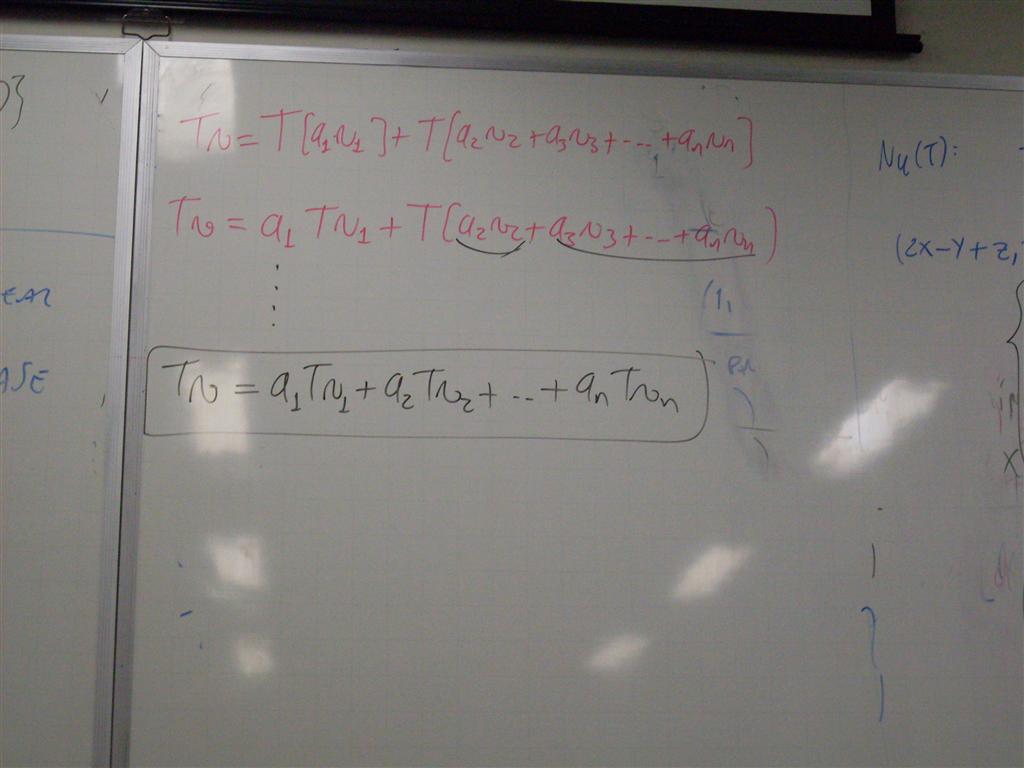 Tv = T[a₁v₁] + T[a₂v₂ + a₃v₃ + ... + aₙvₙ]
Tv = a₁ Tv₁ + T[a₂v₂ + a₃v₃ + ... + aₙvₙ]
⋮
Tv = a₁Tv₁ + a₂Tv₂ + ... + aₙTvₙ
ASE
Nu(T):
(2x-y+z,